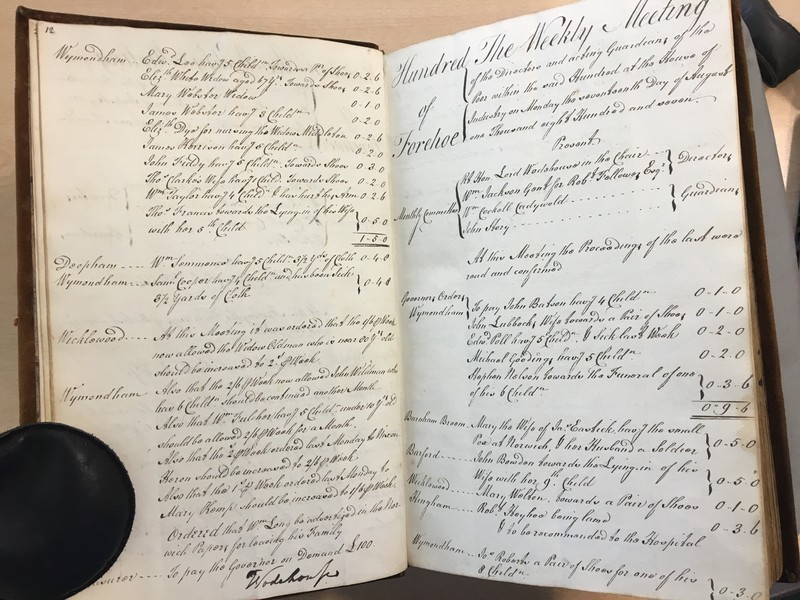 12
Wymondham .. Edwd. Loo havg 5 Childn. Towards Pr. of Shoes 0-2-6
Elizth. White Widow aged 47 Towards Shoes 0-2-6
Mary Webster Widow 0-1-0
James Webster havg 3 Childn. 0-2-0
Elizth. Dye for nursing the Widow Middleton 0-2-6
James Harrison havg 5 Childn. 0-2-0
John Tiddy havg 5 Childn. Towards Shoes 0-3-0
Thos. Clarke's Wife havg Childn. Towards Shoes 0-2-0
Wm. Taylor havg 4 Childn. & has hurt his Arm 0-2-6
Thos. Francis towards the Lying-in of his Wife
with her 5th Child 0-5-0
1-5-0
Deopham .... Wm. Simmons havg 5 Childn. 3/2 Yds. of Cloth 0-4-0
Wymondham ... Saml. Cooper havg 4 Childn. and has been Sick
3/2 Yards of Cloth 0-4-8
Wicklewood .... At this Meeting it was ordered that the 1/6 ₱ Week
now allowed the Widow Oldman who is near 80 Yrs. old
should be increased to 2s. ₱ Week
Wymondham Also that the 2/6 ₱ Week now allowed John Wildman who
has 6 Childn. Should be continued another Month
Also that Wm. Fulcher havg 5 Childn. under 10 Yrs. old
should be allowed 2/6 ₱ Week for a Month.
Also that the 2s. ₱ Week ordered last Monday to
Heron should be increased to 2/6 ₱ Week
Also that the 1s. ₱ Week ordered last Monday to
Mary Kemp should be increased to 1/6 ₱ Week
Ordered that Wm. Long be advertized in the Nor-
wich Papers for leaving his Family
surer .... To pay the Governor on Demand £100.
Wodehouse
Hundred
of
Forehoe
The Weekly Meeting
of the Directors and acting Guardians of the
Poor within the said Hundred at the House of
Industry on Monday the seventeenth Day of August
one Thousand eight Hundred and seven.
Present
Monthly Committee
Rt. Hon. Lord Wodehouse in the Chair
Wm. Jackson Gent for Robt. Fellowes Esqr.
Directors
Wm. Cockell Cadywold
John Hory
Guardians
At this Meeting the Proceedings of the last were
read and confirmed
Governors Orders
Wymondham To pay John Batson havg 4 Childn. 0-1-0
John Lubbock's Wife towards a Pair of Shoes 0-1-0
Edwd. Poll havg 5 Childn. & Sick last Week 0-2-0
Michael Gooding havg 5 Childn. 0-2-0
Stephen Nelson towards the Funeral of one
of his 6 Childn. 0-3-6
0-9-6
Barnham Broom Mary the Wife of Jas. Eastick havg the small
Pox at Norwich, & her Husband a Soldier 0-5-0
Barford .... John Bowden towards the Lying-in of his
Wife with her 9th. Child 0-5-0
Wicklewood .... Mary Wolten towards a Pair of Shoes 0-1-0
Hingham .... Robt. Heyhoe being lame
& to be recommended to the Hospital 0-3-6
Wymondham ... Jas. Roberts a Pair of Shoes for one of his
8 Childn. 0-3-